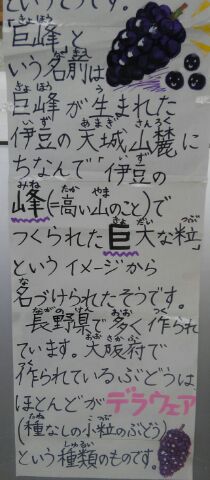 というそうです。
「巨峰」と
いう名前は
巨峰が生まれた
伊豆の天城山麓に
ちなんで「伊豆の
峰(=高い山のこと)で
つくられた巨大な粒」
というイメージから
名づけられたそうです。
長野県で多く作られ
ています。大阪府で
作られているぶどうは
ほとんどがデラウェア
(種なしの小粒のぶどう)
という種類のものです。